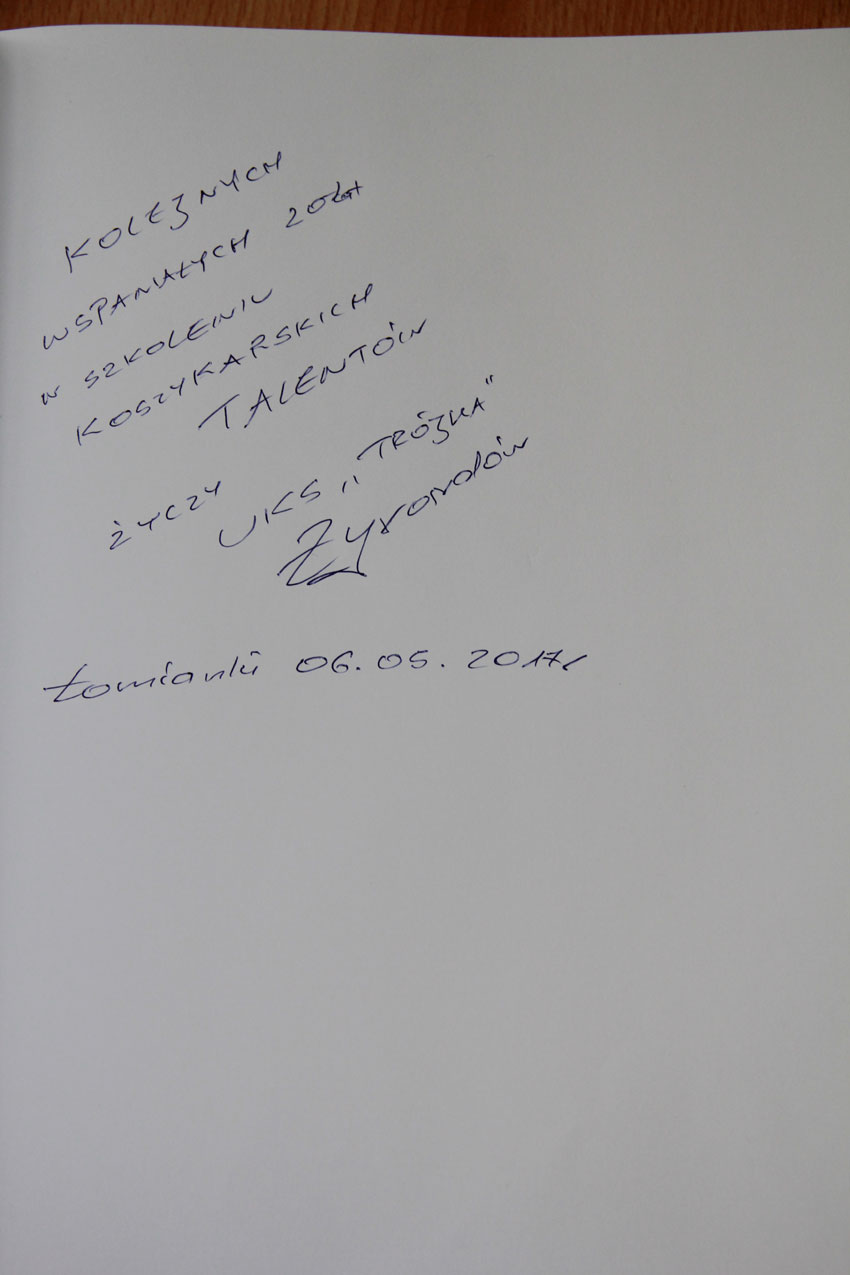 KOLEJNYCH
WSPANIAŁYCH 20 lat
W SZKOLENIU
KOSZYKARSKICH
TALENTÓW
ŻYCZY
UKS „TRÓJKA"
Żyrardów
Łomianki 06.05.2017r